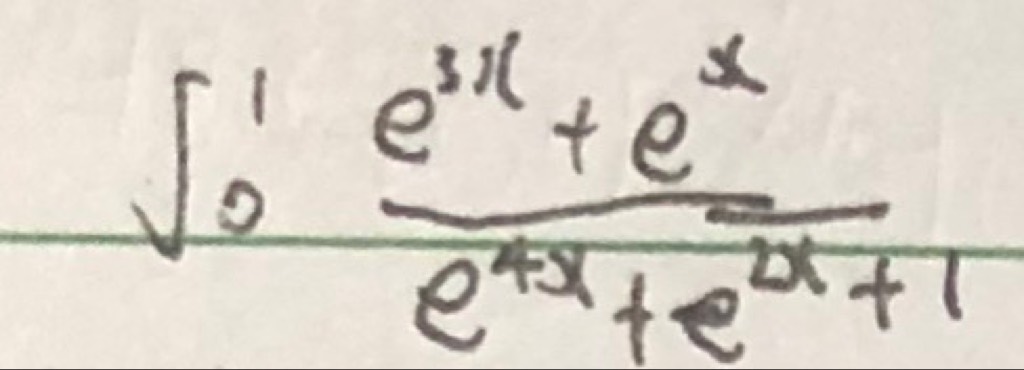 ∫₀¹ (e^{3x} + e^{x}) / (e^{4x} + e^{2x} + 1)